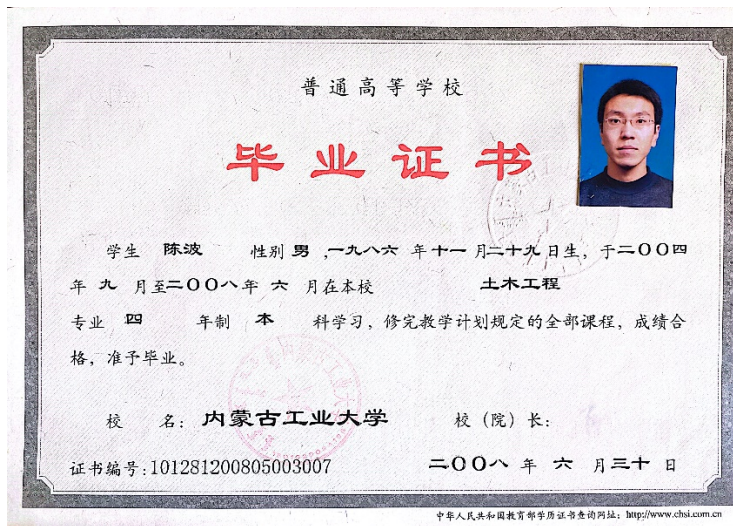 普通高等学校
毕业证书
学生 陈波 性别 男 ,一九八六 年 十一 月二十九日生，于二〇〇四
年 九 月至二〇〇八年 六 月在本校 土木工程
专业 四 年制 本 科学习，修完教学计划规定的全部课程，成绩合
格，准予毕业。
校 名：内蒙古工业大学 校（院）长：
证书编号:101281200805003007 二〇〇八 年 六 月三十 日
中华人民共和国教育部学历证书查询网址：http://www.chsi.com.cn